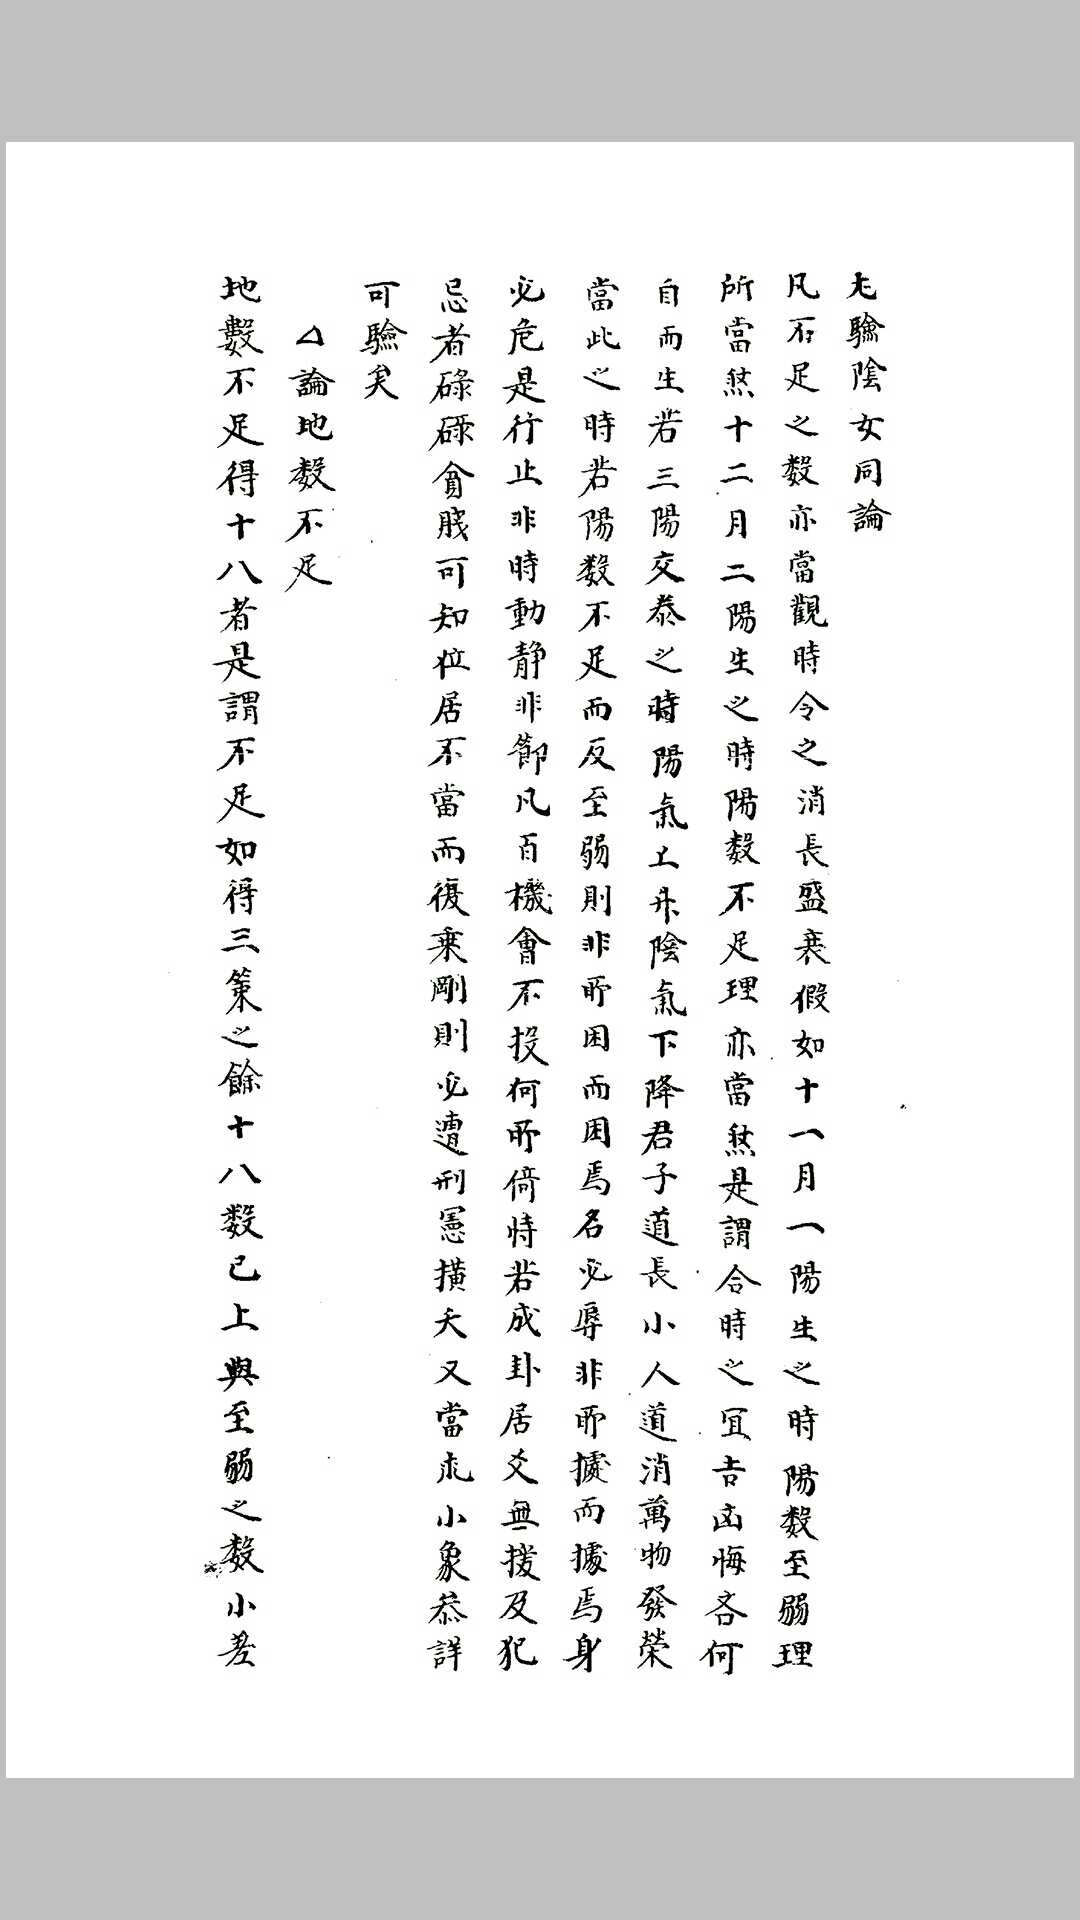 尤驗陰女同論
凡不足之数亦當觀時令之消長盛衰假如十一月一陽生之時陽数至弱理
所當然十二月二陽生之時陽数不足理亦當然是謂合時之宜吉凶悔吝何
自而生若三陽交泰之時陽氣上升陰氣下降君子道長小人道消萬物發榮
當此之時若陽数不足而反至弱則非所困而困焉名必辱非所據而據焉身
必危是行止非時動静非節凡百機會不投何所倚恃若成卦居爻無援及犯
忌者碌碌貧賤可知位居不當而復乗剛則必遭刑憲横夭又當求小象叅詳
可驗矣
△論地数不足
地數不足得十八者是謂不足如得三策之餘十八数已上與至弱之数小差